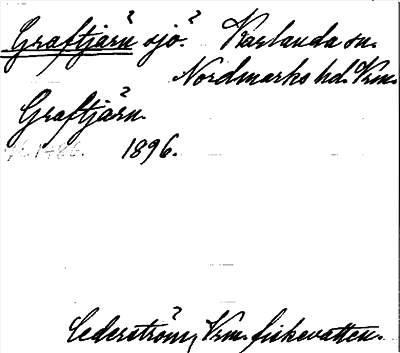 Graftjärn sjö. Karlanda sn.
Nordmarks hd. Vrm.
Graftjärn.
1896.
Cederström, Vrm. fiskevatten.